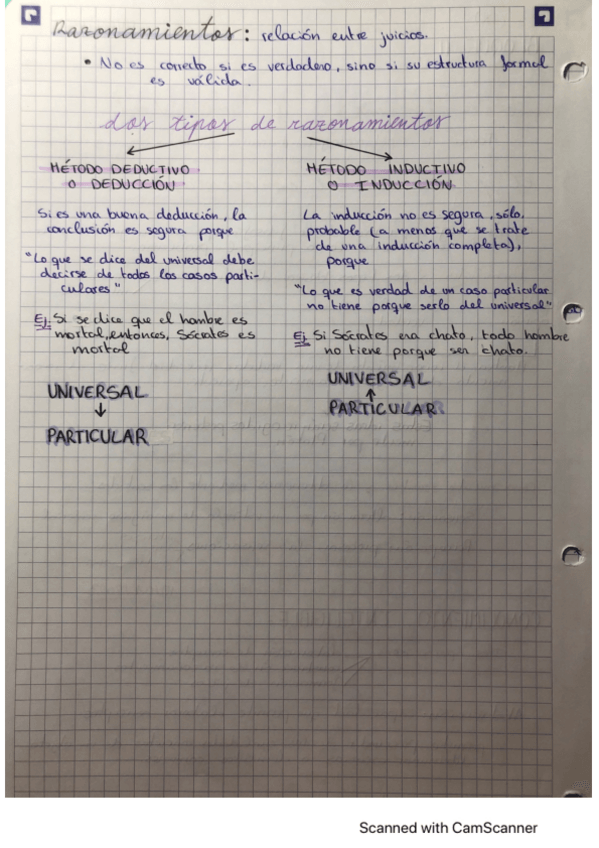 Razonamientos: relación entre juicios.
• No es correcto si es verdadero, sino si su estructura formal
es válida.
dos tipos de razonamientos
MÉTODO DEDUCTIVO
O DEDUCCIÓN
Si es una buena deducción, la
conclusión es segura porque
"Lo que se dice del universal debe
decirse de todos los casos parti-
culares"
Ej. Si se dice que el hombre es
mortal, entonces, Sócrates es
mortal
UNIVERSAL
↓
PARTICULAR
MÉTODO INDUCTIVO
O INDUCCIÓN
La inducción no es segura, sólo
probable (a menos que se trate
de una inducción completa),
porque
"Lo que es verdad de un caso particular
no tiene porque serlo del universal"
Ej. Si Sócrates era chato, todo hombre
no tiene porque ser chato.
UNIVERSAL
↑
PARTICULAR
Scanned with CamScanner